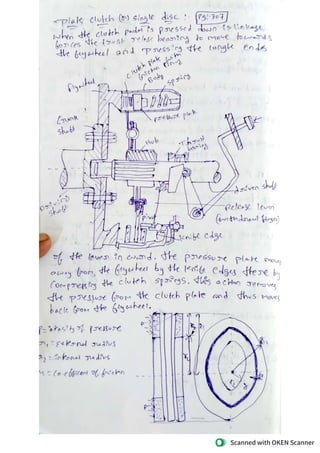 plate clutch (or) single disc : Pg: 707
When the clutch pedal is pressed down is linkage
forces the trust relese bearing to move towards
the flywheel and pressing the longle ends
clutch plate with
(friction lining)
Body
springs
Flywheel
pressure plate
Crank
shaft
Hub
Thrust
bearing
driven shaft
Driving
shaft
Release lever
Pivot
knife edge
of the lever in cword. The pressure plate moves
away from the flywheel by the knife edges there by
Compressing the clutch springs. This action removes
the pressure from the clutch plate and thus moves
back from the flywheel.
P = intensity of pressure
r1 = External radius
r2 = internal radius
μ = Co-efficient of friction
Scanned with OKEN Scanner